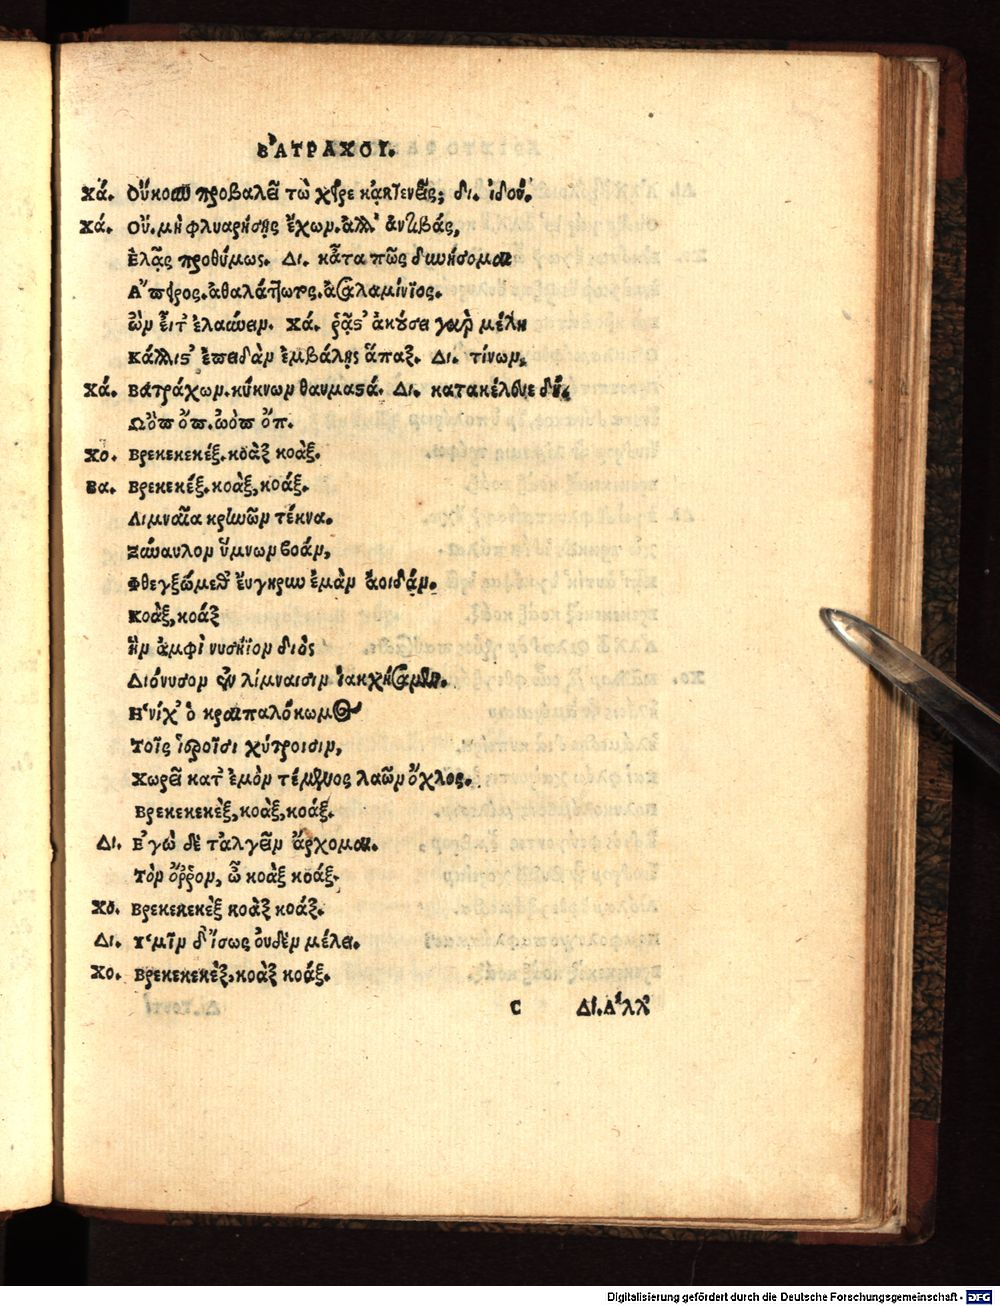 ΒΆΤΡΑΧΟΙ.
Χά. Οὔκουν προβαλεῖ τὼ χεῖρε κᾀκτενεῖς; δι. ἰδού.
Χά. Οὔ.μὴ φλυαρήσῃς ἔχων.ἀλλ' ἀντιβάς,
Ἐλᾷς προθύμως. Δι. κᾆτα πῶς δυνήσομαι
Ἄπειρος.ἀθαλάττωτος.ἀσαλαμίνιος.
ὢν εἶτ' ἐλαύνειν. Χά. ῥᾷστ' ἀκούσει γὰρ μέλη
Κάλλιστ' ἐπειδὰν ἐμβάλῃς ἅπαξ. Δι. τίνων,
Χά. Βατράχων.κύκνων θαυμαστά. Δι. κατακέλευε δή.
Ὠὸπ ὄπ.ὠὸπ ὄπ.
Χο. Βρεκεκεκέξ.κοὰξ κοὰξ.
Βα. Βρεκεκέξ.κοὰξ,κοάξ.
Λιμναῖα κρηνῶν τέκνα.
Ξύναυλον ὕμνων βοάν,
Φθεγξώμεθ' εὔγηρυν ἐμὰν ἀοιδάν.
Κοὰξ,κοάξ
Ἣν ἀμφὶ νυσήϊον διὸς
Διόνυσον ἐν λίμναισιν ἰακχήσαμεν.
Ἡνίχ' ὁ κραιπαλόκωμος
Τοῖς ἱεροῖσι χύτροισιν,
Χωρεῖ κατ' ἐμὸν τέμενος λαῶν ὄχλος.
Βρεκεκεκὲξ,κοὰξ,κοάξ.
Δι. Ἐγὼ δὲ τ' ἀλγεῖν ἄρχομαι.
Τὸν ὄῤῥον, ὦ κοὰξ κοάξ.
Χο. Βρεκεκεκὲξ κοὰξ κοάξ.
Δι. Ὑμῖν δ' ἴσως οὐδὲν μέλει.
Χο. Βρεκεκεκὲξ.κοὰξ κοάξ.
C Δι.Ἀλλ'
Digitalisierung gefördert durch die Deutsche Forschungsgemeinschaft - DFG